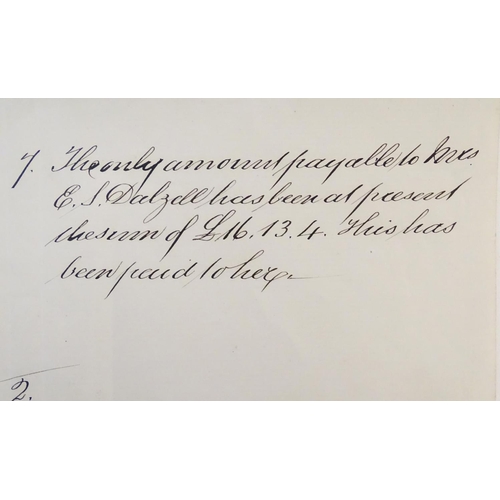 7. The only amount payable to Mrs.
E. S. Dalzell has been at present
the sum of £16. 13. 4. This has
been paid to her.
2.